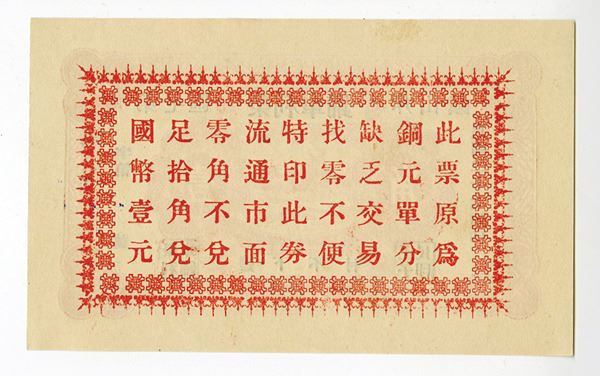 此票原爲
銅元單分
缺乏交易
找零不便
特印此券
流通市面
零角不兌
足拾角兌
國幣壹元